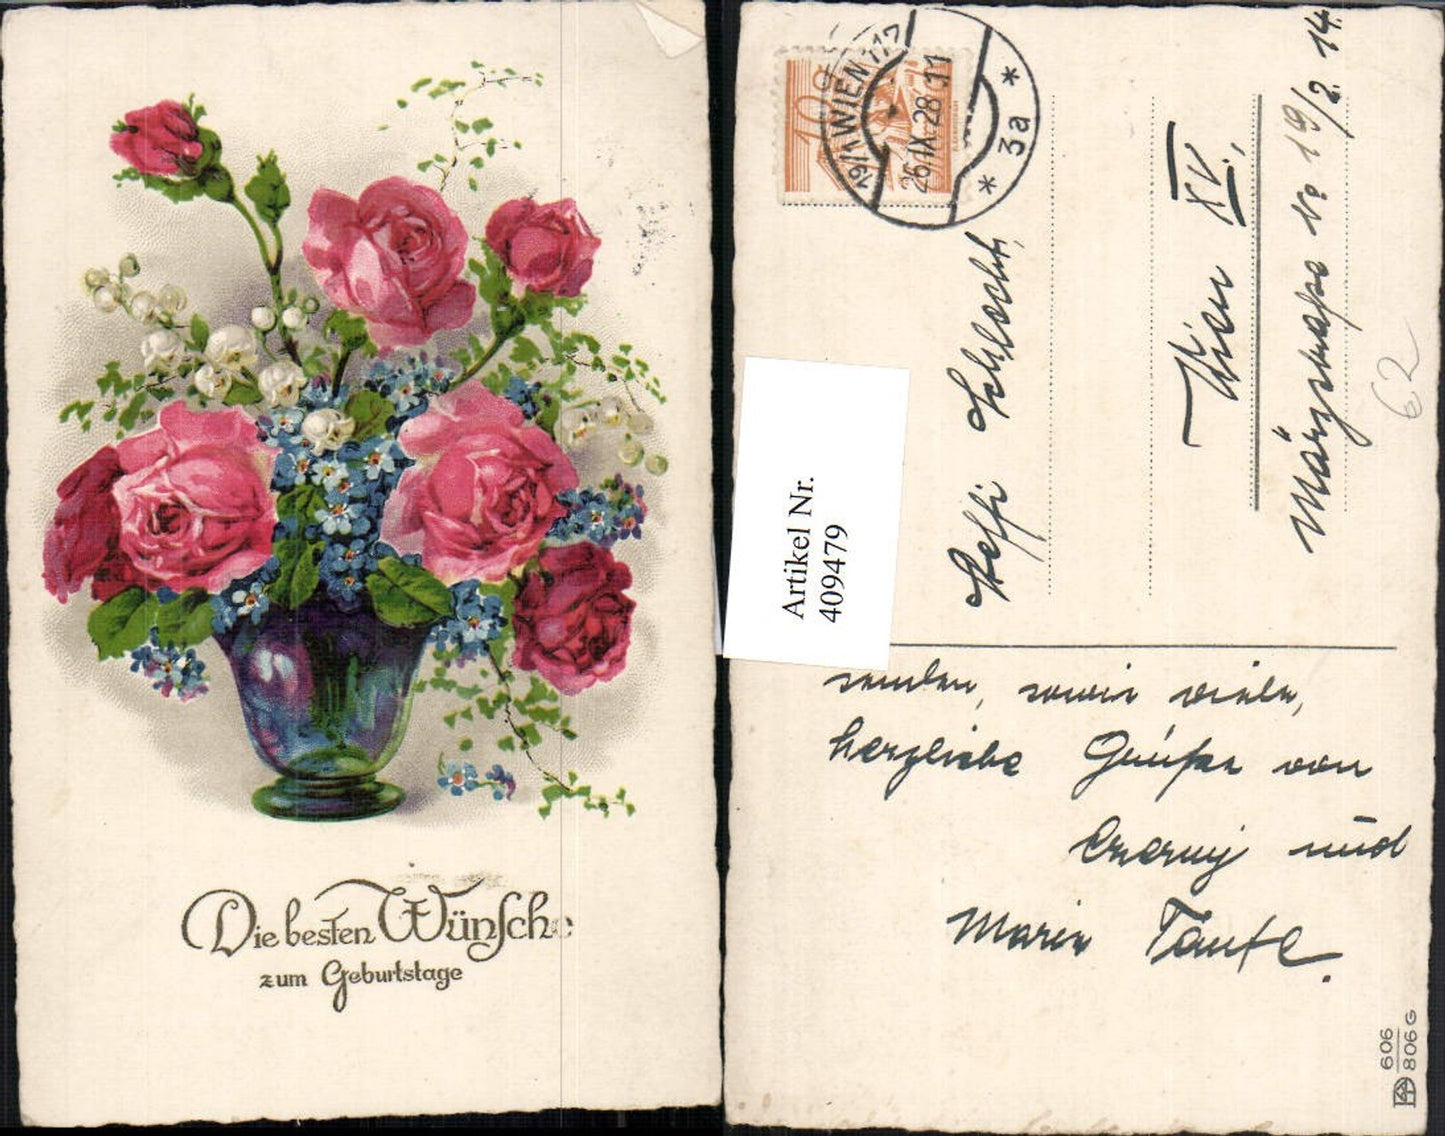 Die besten Wünsche
zum Geburtstage
19/1 WIEN 117
26.IX.28.11
* 3a *
10g
Steffi Schlecht,
Wien XV.,
Märzstraße No 19/2. 14.
62
Artikel Nr.
409479
senden, sowie viele,
herzliche Grüße von
Czerny und
Marie Tante.
606
806 G